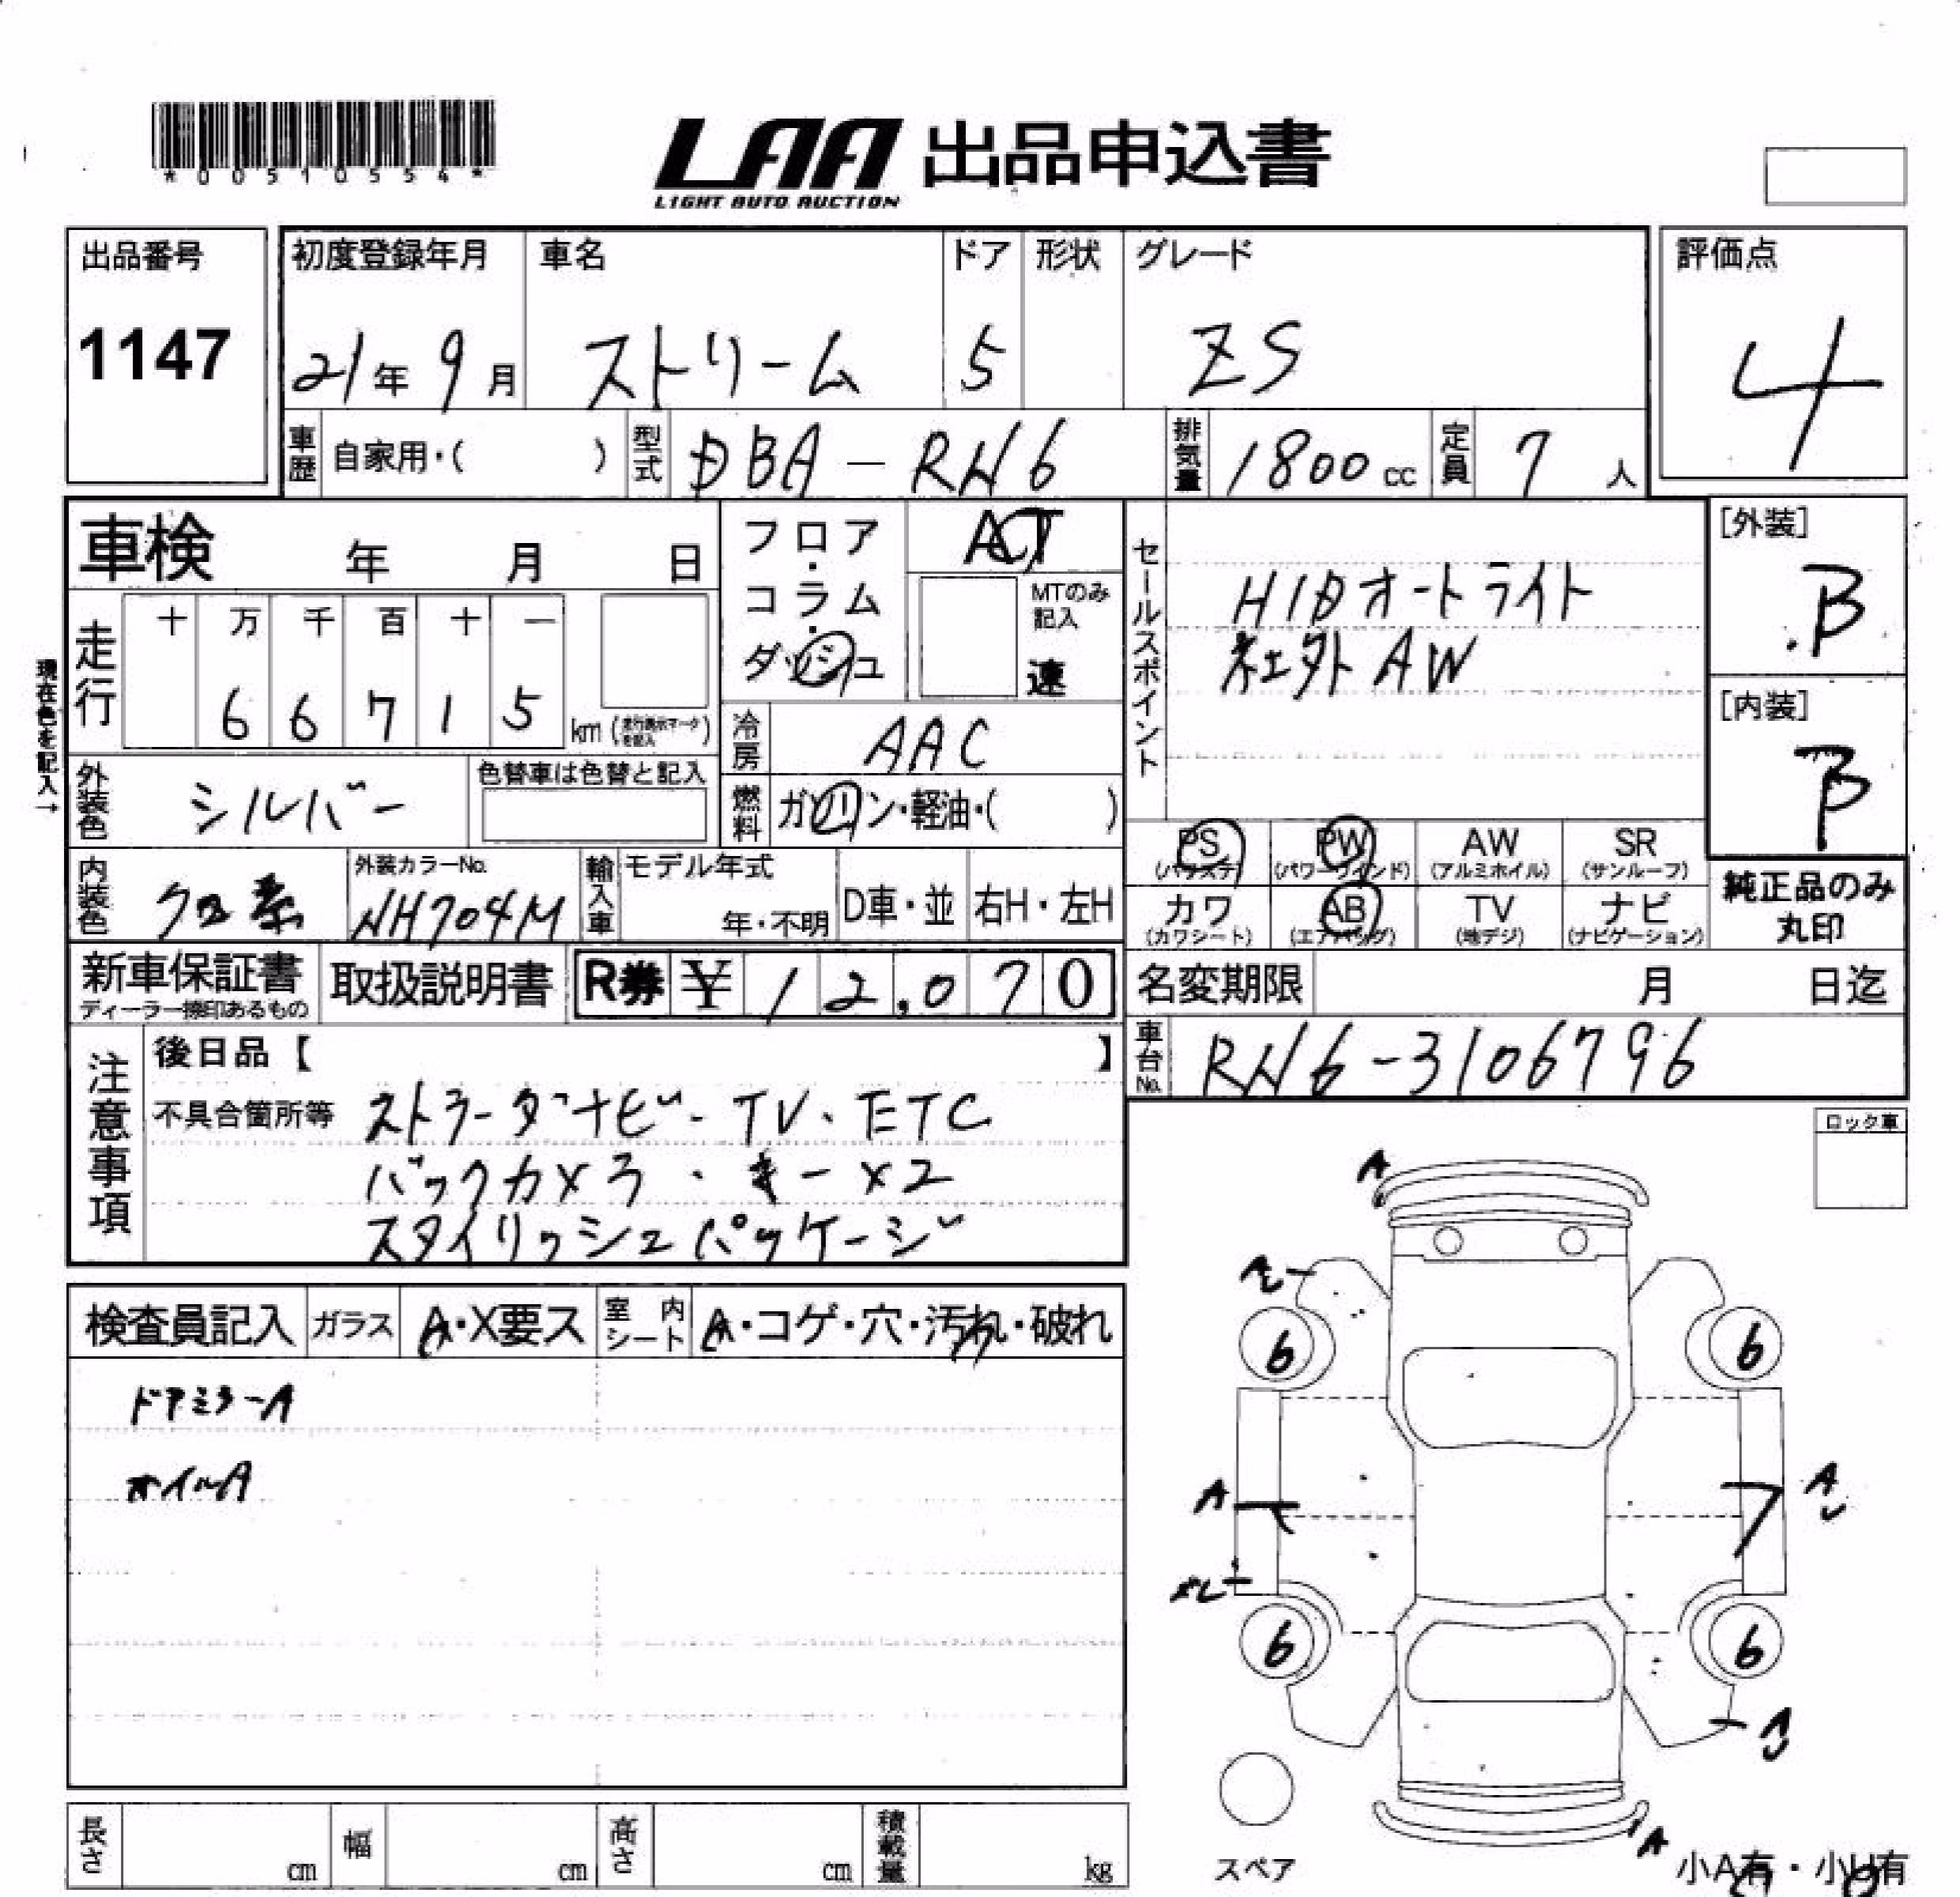 *00510554*
LAA 出品申込書
LIGHT AUTO AUCTION
出品番号
1147
初度登録年月
21年9月
車名
ストリーム
ドア
5
形状
グレード
ZS
評価点
4
車歴
自家用・( )
型式
DBA-RN6
排気量
1800cc
定員
7人
車検 年 月 日
フロア・コラム・ダッシュ
AT
MTのみ記入
速
セールスポイント
HIDオートライト
社外AW
[外装]
B
[内装]
B
現在色を記入→
走行
十 万 千 百 十 一
6 6 7 1 5
km (走行表示マークを記入)
冷房
AAC
外装色
シルバー
色替車は色替と記入
燃料
ガソリン・軽油・( )
PS
PW
(パワーウィンド)
AW
(アルミホイル)
SR
(サンルーフ)
内装色
クロ系
外装カラーNo.
NH704M
輸入車
モデル年式
年・不明
D車・並
右H・左H
カワ
(カワシート)
AB
(エアバッグ)
TV
(地デジ)
ナビ
(ナビゲーション)
純正品のみ
丸印
新車保証書
ディーラー捺印あるもの
取扱説明書
R券 ¥ 12,070
名変期限 月 日迄
車台No.
RN6-3106796
注意事項
後日品【 】
不具合箇所等 ストラーダナビ・TV・ETC
バックカメラ・キー×2
スタイリッシュパッケージ
ロック車
検査員記入
ガラス
A・X要ス
室内シート
A・コゲ・穴・汚れ・破れ
ドアミラーA
オイルA
A
6
6
A
A
6
6
A
スペア
小A有・小U有
長さ cm
幅 cm
高さ cm
積載量 kg